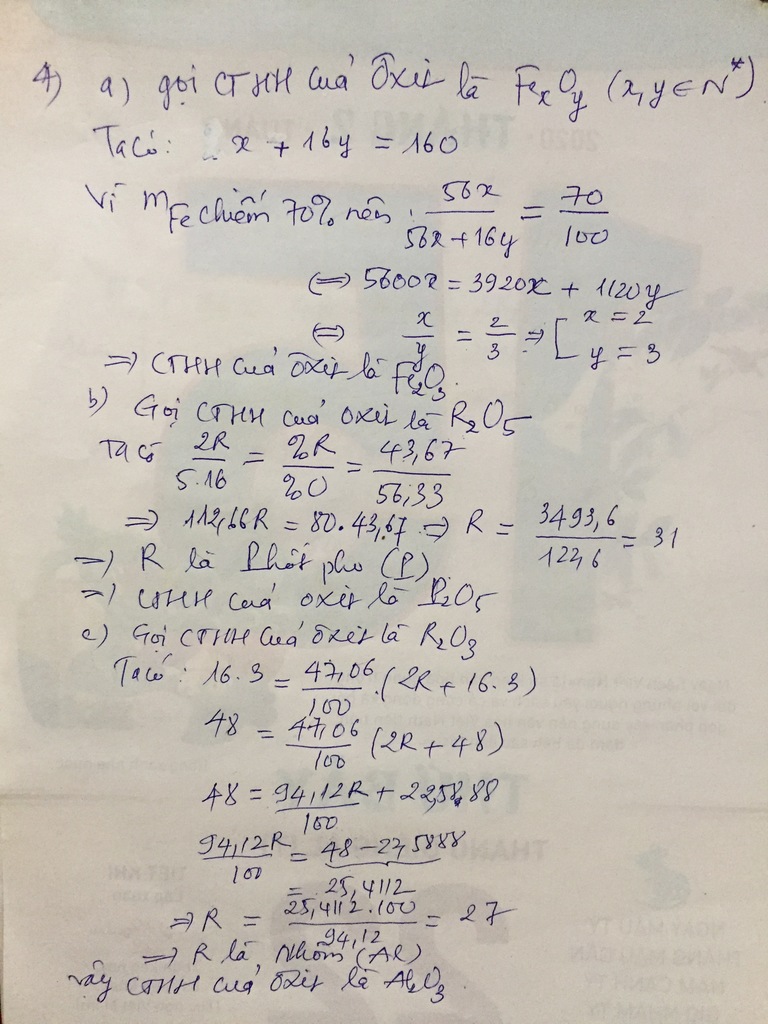 4) a) gọi CTHH của Ôxit là FexOy (x,y ∈ N*)
Ta có: x + 16y = 160
Vì mFe chiếm 70% nên 56x/(56x+16y) = 70/100
⇔ 5600x = 3920x + 1120y
⇔ x/y = 2/3 ⇒ [x = 2 y = 3
⇒ CTHH của ôxit là Fe2O3.
b) Gọi CTHH của oxit là R2O5
Ta có 2R/5.16 = %R/%O = 43,67/56,33
⇒ 112,66R = 80.43,67 ⇒ R = 3493,6/112,6 = 31
⇒ R là Phốt pho (P)
⇒ CTHH của oxit là P2O5
c) Gọi CTHH của ôxit là R2O3
Ta có: 16.3 = 47,06/100.(2R + 16.3)
48 = 47,06/100 (2R + 48)
48 = 94,12R/100 + 22,5888
94,12R/100 = 48 - 22,5888
= 25,4112
⇒ R = 25,4112.100/94,12 = 27
⇒ R là Nhôm (Al)
vậy CTHH của ôxit là Al2O3.